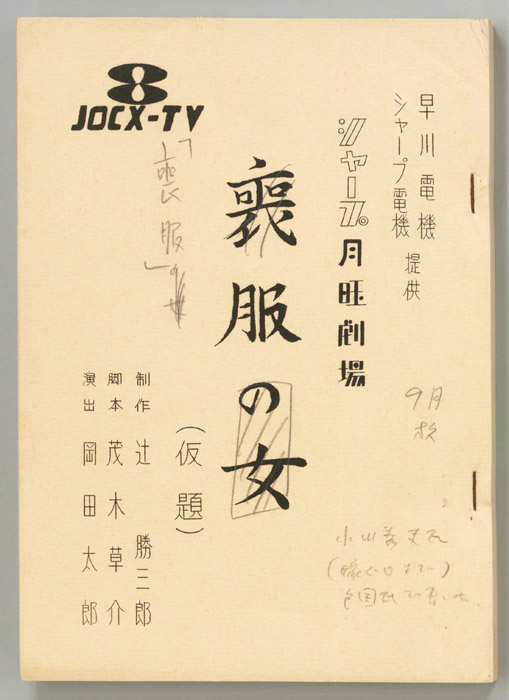 早川電機
シャープ電機 提供
シャープ月曜劇場
喪服の女
(仮題)
制作 辻 勝三郎
脚本 茂木草介
演出 岡田太郎
JOCX-TV
「喪服」
9月